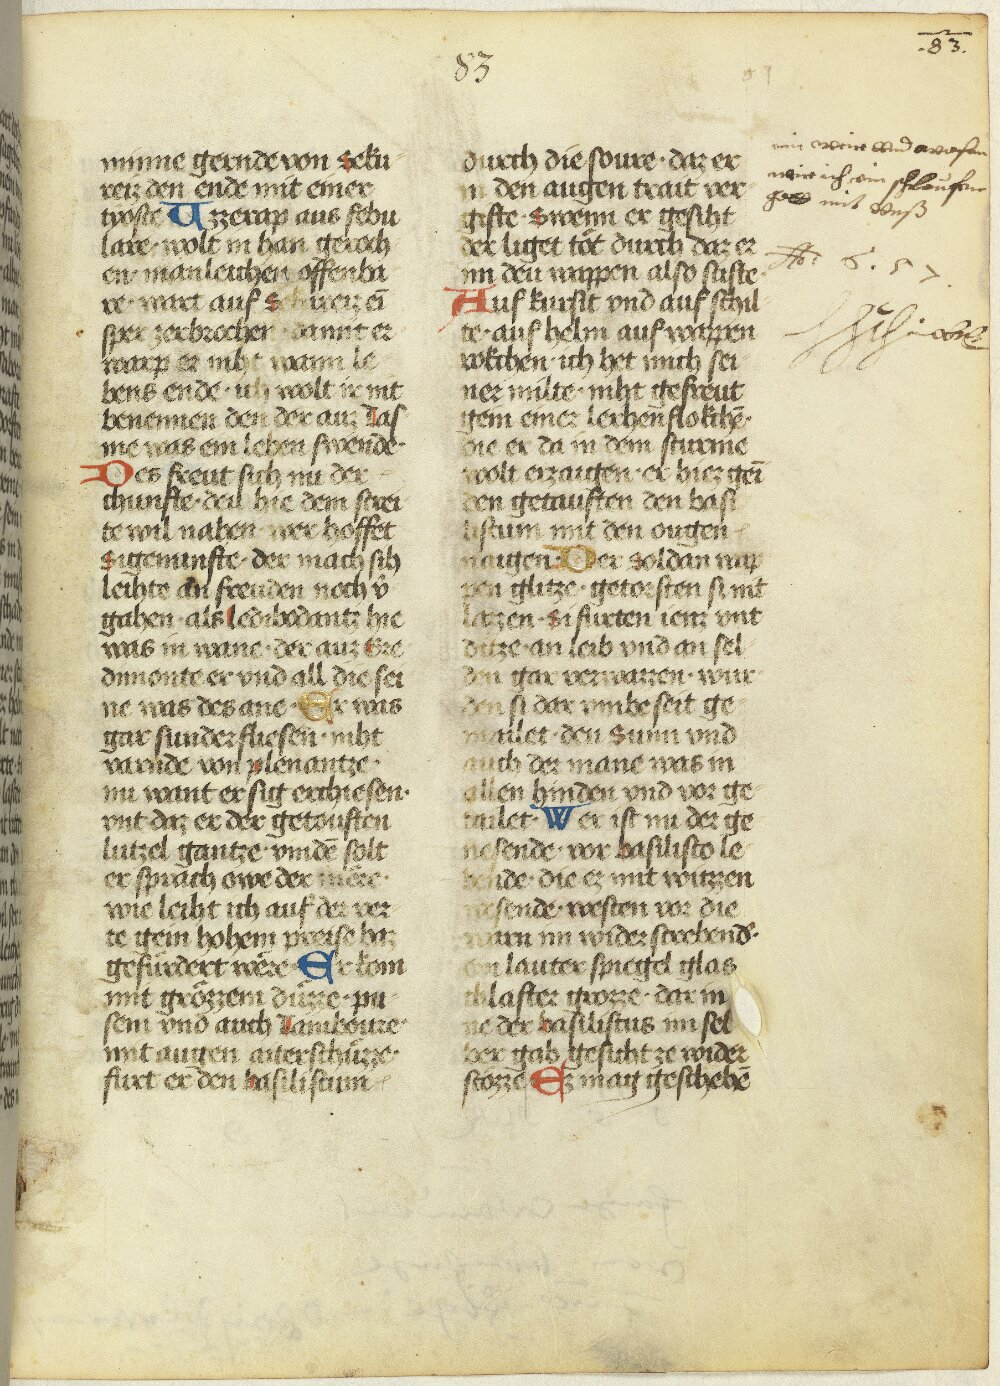 83
.83.
minne gernde von Seku
reiz den ende mit einer
tioste Azzerap aus sehu
lare · wolt in han geroch
en · manleichen offenba
re · wart auf Sekureiz ei
sper zerbrochen · damit er
warp er niht wann le
bens ende · ich wolt ir nit
benennen den der auz Jas
me was ein leben swende ·
Des freut sich nu der
chunfte · den hie dem strei
te wil nahen · wer hoffet
Sigenunfte · der mach sih
leihte an freuden noch v̊
gahen · als Ledibodantz hie
was in wane · der auz Gre
dimonte er vnd all die sei
ne was des ane · Er was
gar sunder fliesen · niht
varnde von plenantze ·
nu want er sig erchiesen ·
vnt daz er der getouften
lutzel gantze · vinde solt
er sprach owe der mere ·
wie leiht ich auf der ver
te gein hohem preise baz
gefürdert were · Er kom
mit grözzem düzze · pu
sein vnd auch Tamboure ·
mit augen aiterschüzze ·
furt er den basiliscum
durch die soure · daz er
in den augen trait ver
gifte · Swenn er gesiht
der liget tot durch daz er
im den wappen also stifte
Auf kursit vnd auf schil
te · auf helm auf wappen
rokchen · ich het mich sei
ner milte · niht gefreut
gein einer lerhen flokchē ·
die er da in dem sturme
wolt erzaugen · er hiez gei
den getauften den basi
liscum mit den ougen
naugen · Der Soldan wap
pen glitze · getorsten si nit
lazzen · Si furten ienz vnt
ditze · an leib vnd an sel
den gar verwazzen · wur
den si dar vmbe seit ge
mailet · den Sunn vnd
auch der mane was in
allen hinden vnd vor ge
tailet · Wer ist nu der ge
nesende · vor basilisco le
bende · die ez mit witzzen
wesende · westen vor die
warn im wider strebend' ·
ein lauter spiegel glas
chlafter grozze · dar in
ne der basiliscus im sel
ber gab gesiht ze wider
stozze Ez mag geschehē